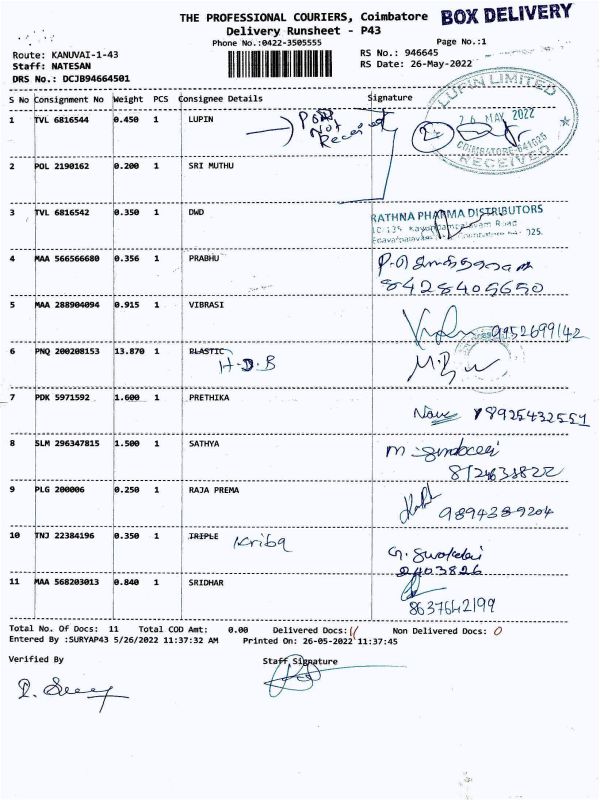 THE PROFESSIONAL COURIERS, Coimbatore BOX DELIVERY
Delivery Runsheet - P43
Phone No.:0422-3505555 Page No.:1
Route: KANUVAI-1-43 RS No.: 946645
Staff: NATESAN RS Date: 26-May-2022
DRS No.: DCJB94664501
S No Consignment No Weight PCS Consignee Details Signature
LUPIN LIMITED
26 MAY 2022
COIMBATORE-641025
RECEIVED
1 TVL 6816544 0.450 1 LUPIN Not Received
2 POL 2190162 0.200 1 SRI MUTHU
3 TVL 6816542 0.350 1 DWD
RATHNA PHARMA DISTRIBUTORS
4 MAA 566566680 0.356 1 PRABHU
8428405650
5 MAA 288904094 0.915 1 VIBRASI
9952699142
6 PNQ 200208153 13.870 1 PLASTIC
H.D.B
7 PDK 5971592 1.600 1 PRETHIKA
8925432551
8 SLM 296347815 1.500 1 SATHYA
8124638822
9 PLG 200006 0.250 1 RAJA PREMA
9894389204
10 TNJ 22384196 0.350 1 TRIPLE Kriba
2403826
11 MAA 568203013 0.840 1 SRIDHAR
8637642199
Total No. Of Docs: 11 Total COD Amt: 0.00 Delivered Docs: 11 Non Delivered Docs: 0
Entered By :SURYAP43 5/26/2022 11:37:32 AM Printed On: 26-05-2022 11:37:45
Verified By Staff Signature